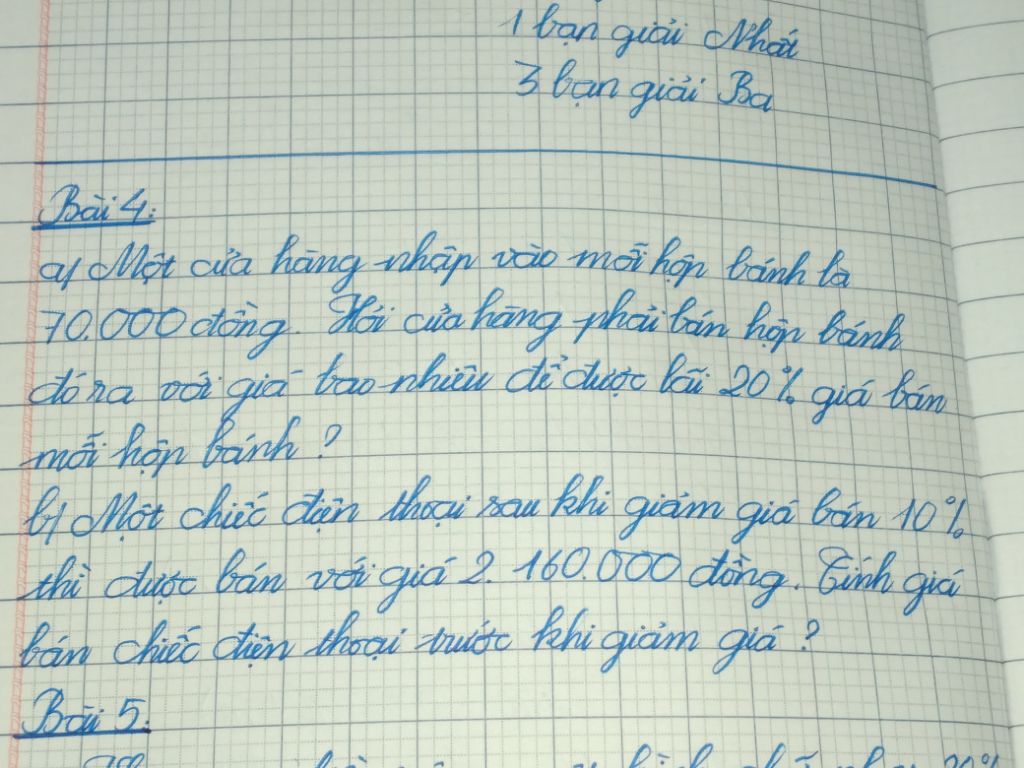 1 bạn giải Nhất
3 bạn giải Ba
Bài 4:
a) Một cửa hàng nhập vào mỗi hộp bánh là
70.000 đồng. Hỏi cửa hàng phải bán hộp bánh
đó ra với giá bao nhiêu để được lãi 20% giá bán
mỗi hộp bánh?
b) Một chiếc điện thoại sau khi giảm giá bán 10%
thì được bán với giá 2.160.000 đồng. Tính giá
bán chiếc điện thoại trước khi giảm giá?
Bài 5: